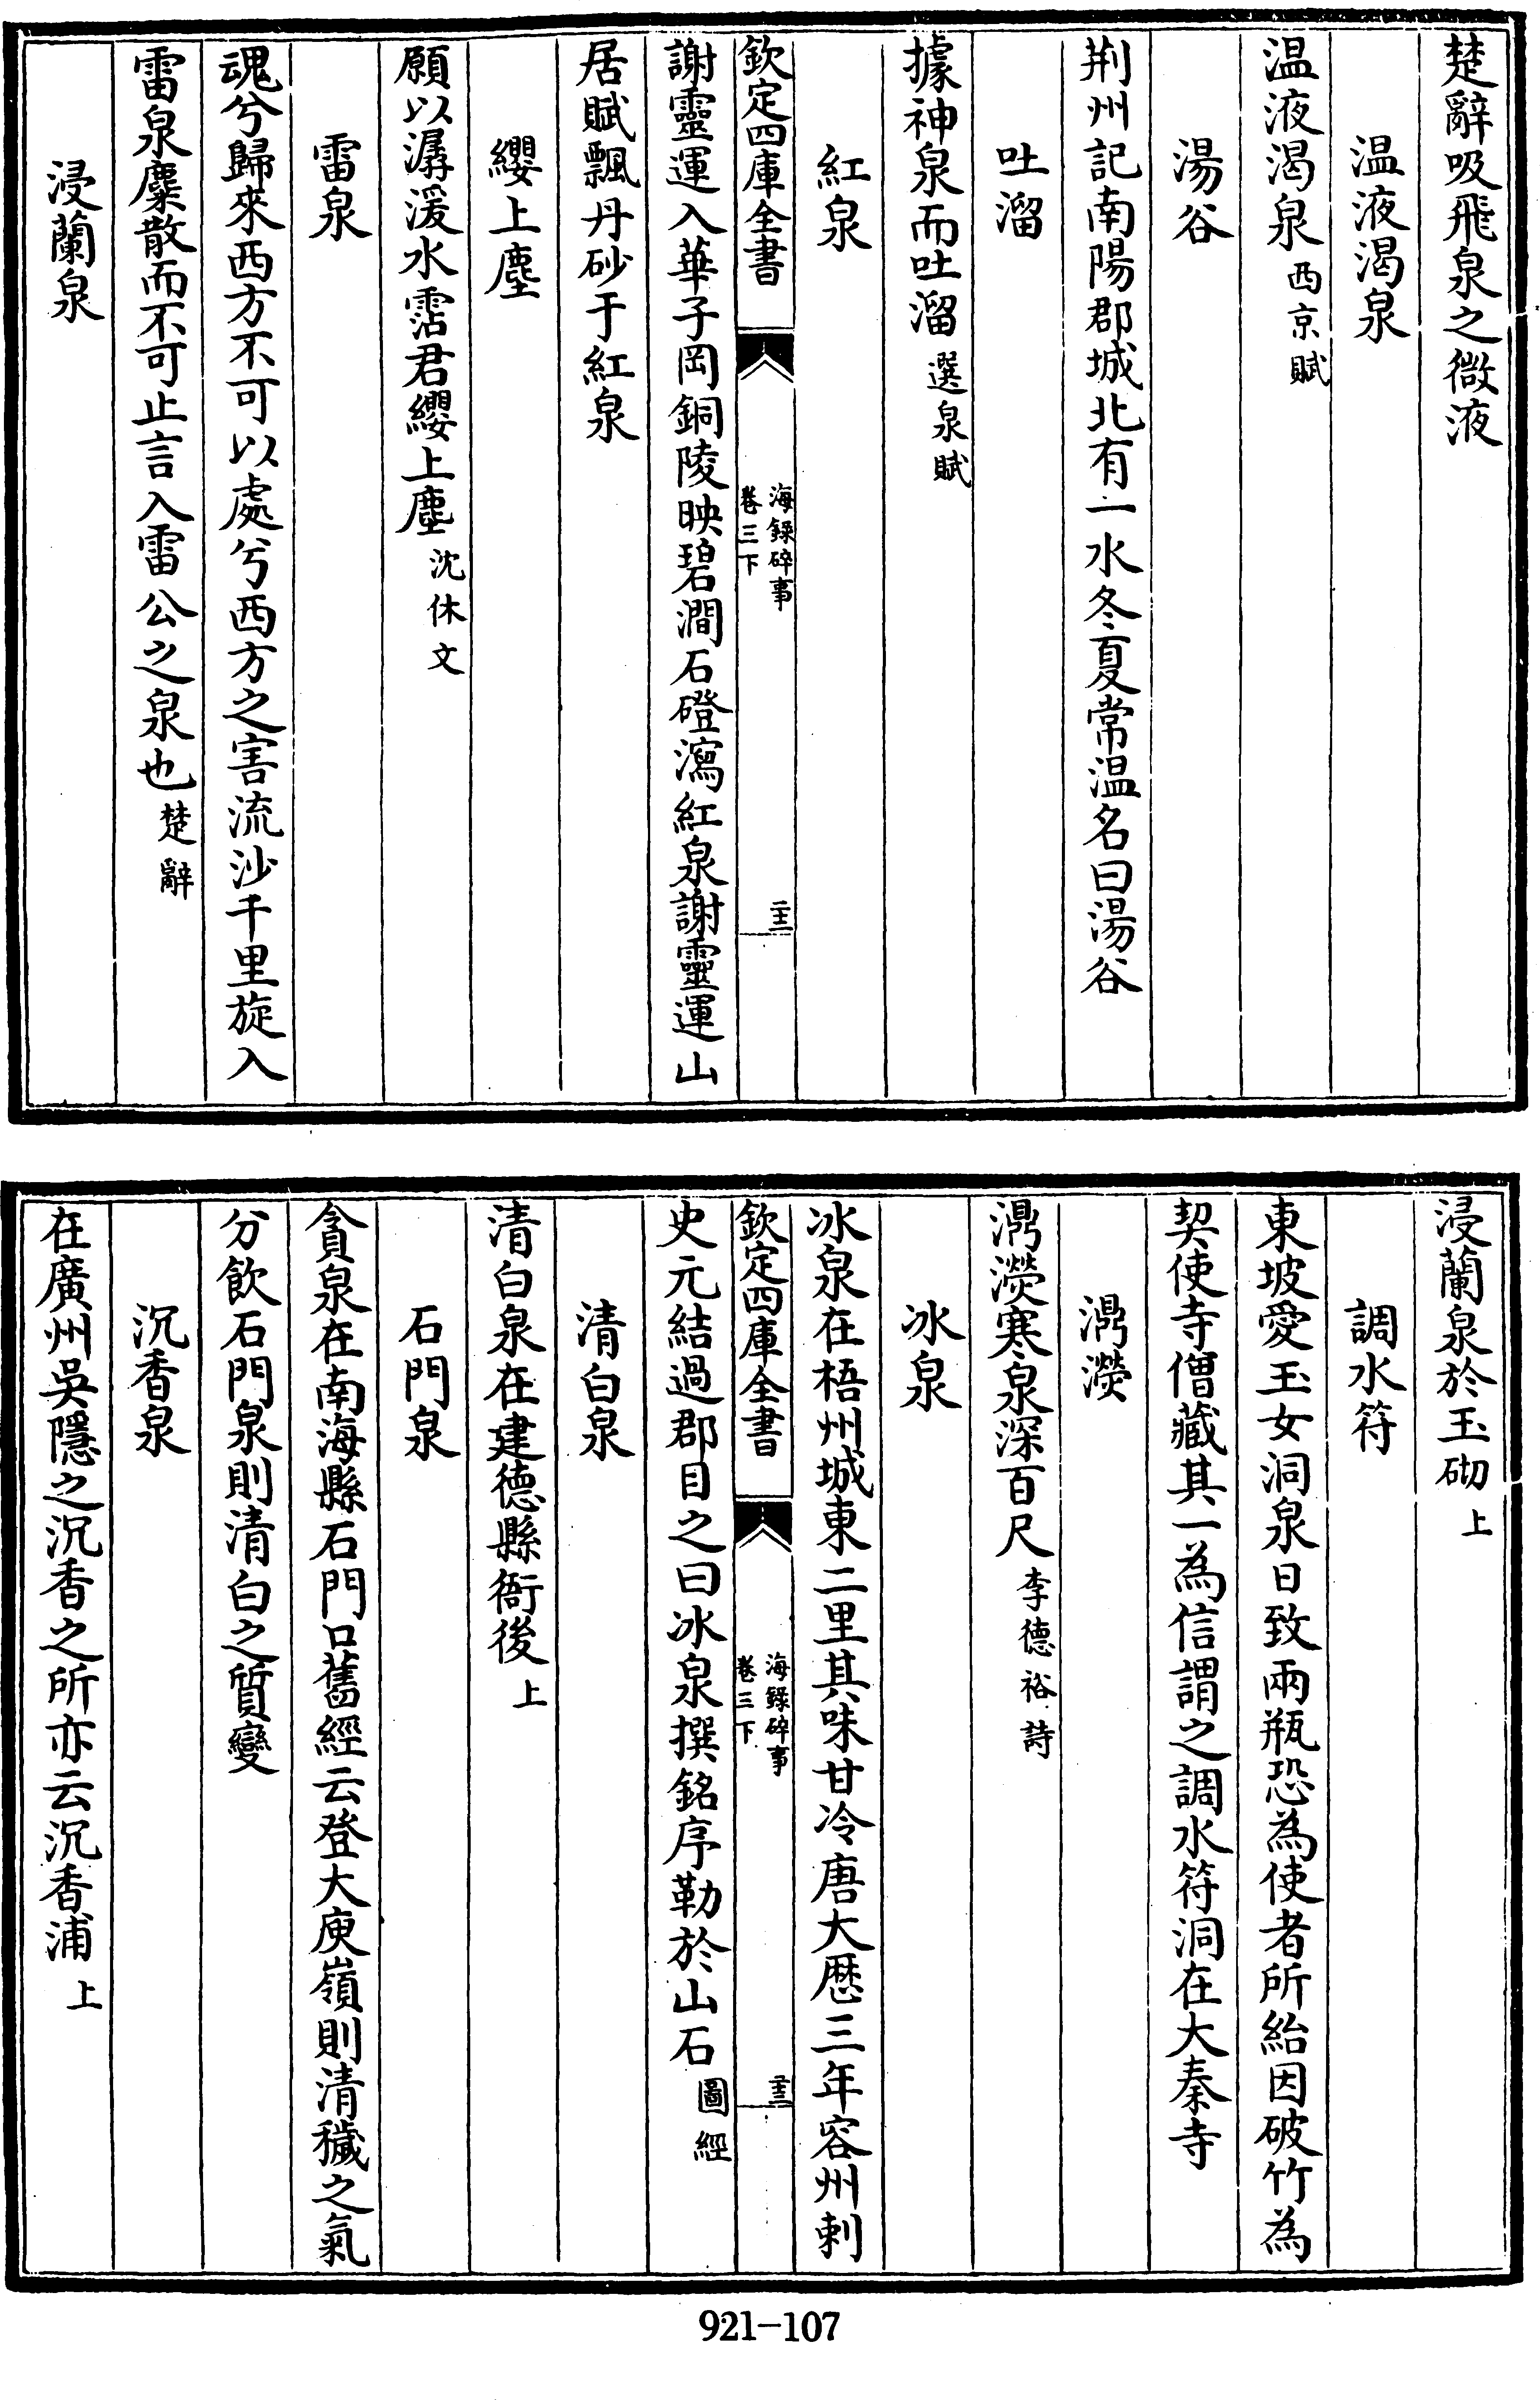 楚辭吸飛泉之微液
温液渴泉
温液渴泉西京賦
湯谷
荆州記南陽郡城北有一水冬夏常温名曰湯谷
吐溜
據神泉而吐溜選泉賦
紅泉
欽定四庫全書
海錄碎事
卷三下
謝靈運入華子岡銅陵映碧澗石磴瀉紅泉謝靈運山
居賦飄丹砂于紅泉
纓上塵
願以潺湲水霑君纓上塵沈休文
雷泉
魂兮歸來西方不可以處兮西方之害流沙千里旋入
雷泉麋散而不可止言入雷公之泉也楚辭
浸蘭泉
浸蘭泉於玉砌上
調水符
東坡愛玉女洞泉日致兩瓶恐為使者所紿因破竹為
契使寺僧藏其一為信謂之調水符洞在大秦寺
灂濙
灂濙寒泉深百尺李德裕詩
冰泉
冰泉在梧州城東二里其味甘冷唐大厯三年容州刺
欽定四庫全書
海錄碎事
卷三下
史元結過郡目之曰冰泉撰銘序勒於山石圖經
清白泉
清白泉在建德縣衙後上
石門泉
貪泉在南海縣石門口舊經云登大庾嶺則清穢之氣
分飲石門泉則清白之質變
沉香泉
在廣州吳隱之沉香之所亦云沉香浦上
921-107